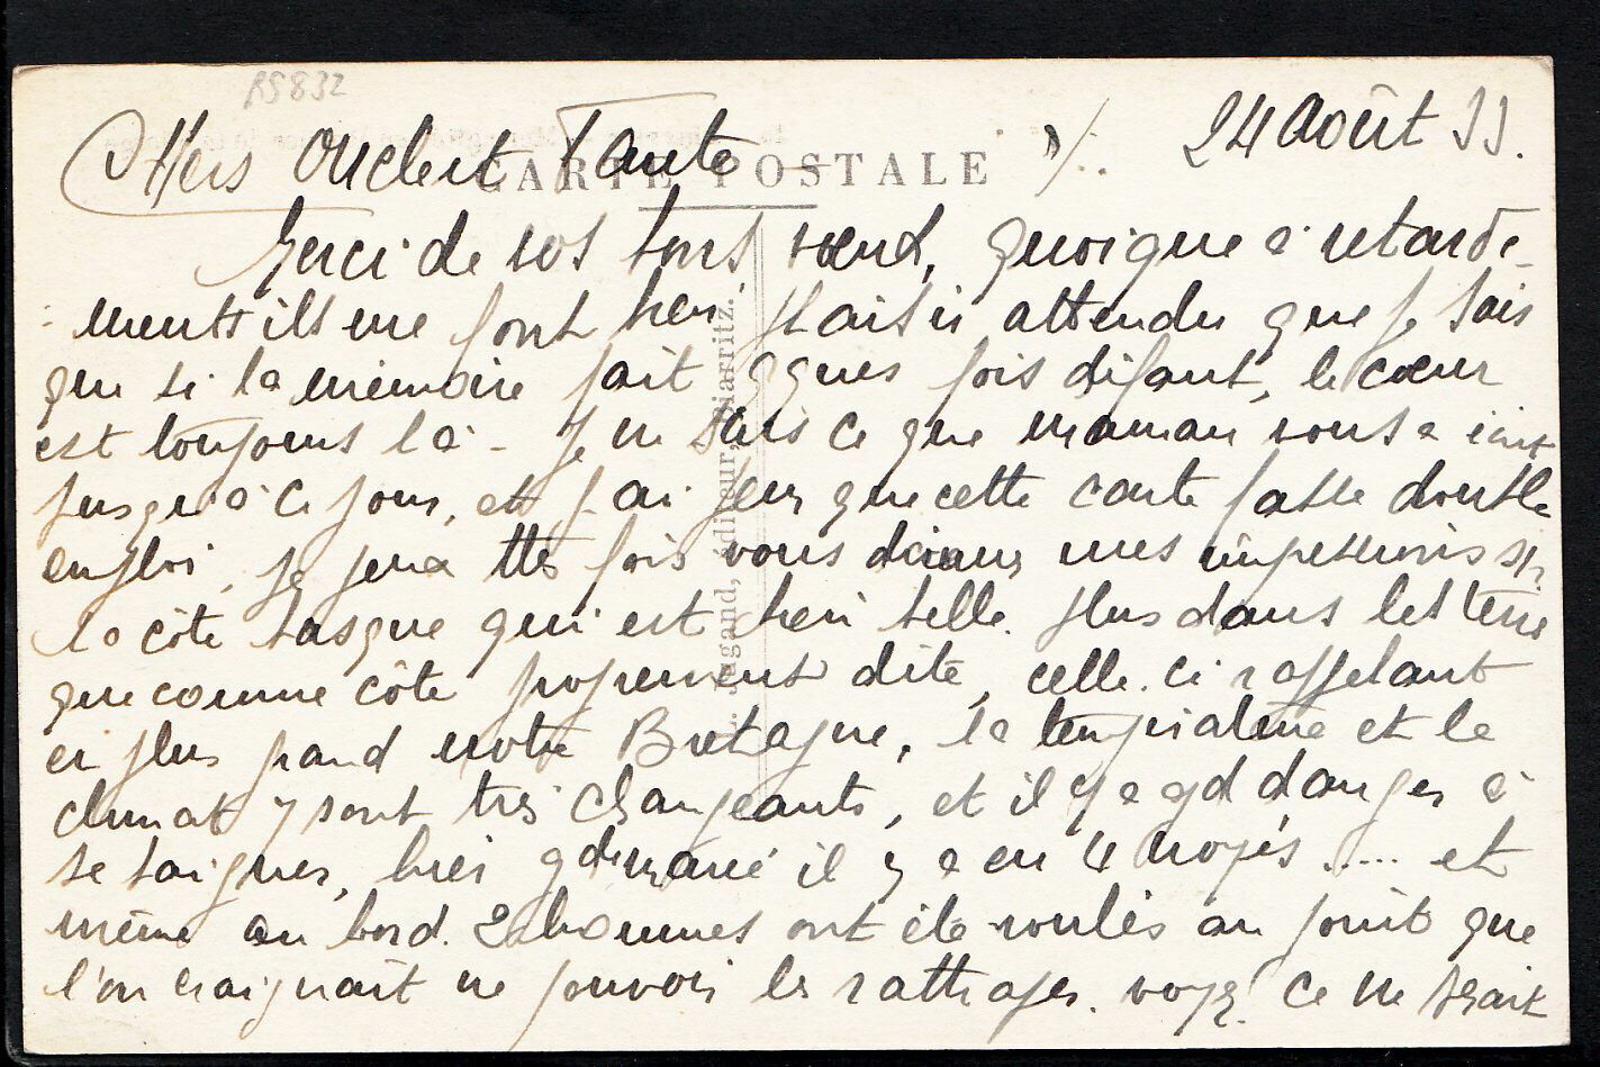 RS832
CARTE POSTALE
Jugand, éditeur, Biarritz.
Chers Oncle et Tante 24 Août 33.
Merci de vos bons vœux, quoique à retarde-
ments ils me font bien plaisir attendu que je sais
que si la mémoire fait qques fois défaut, le cœur
est toujours là - Je ne sais ce que maman vous a écrit
jusqu'à ce jour, et j'ai peur que cette carte fasse double
emploi, je ttes fois vous donner mes impressions sr
la côte basque qui est bien belle. plus dans les terres
que comme côte proprement dite, celle-ci rappelant
en plus grand notre Bretagne, la température et le
climat y sont très changeants, et il y a gd danger à
se baigner, hier gde marée il y a eu 4 noyés ..... et
même au bord. 2 hommes ont été roulés au point que
l'on craignait ne pouvoir les rattraper. voyez! ce ne serait